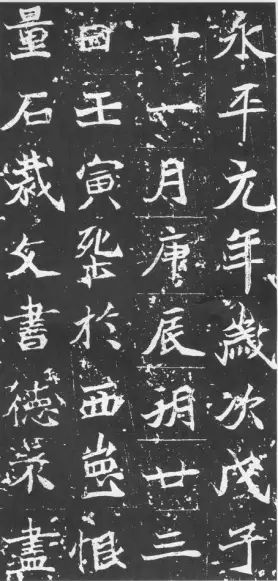 永平元年歲次戊子
十一月庚辰朔廿三
日壬寅葬於西崗恨
量石裁文書德荣盡